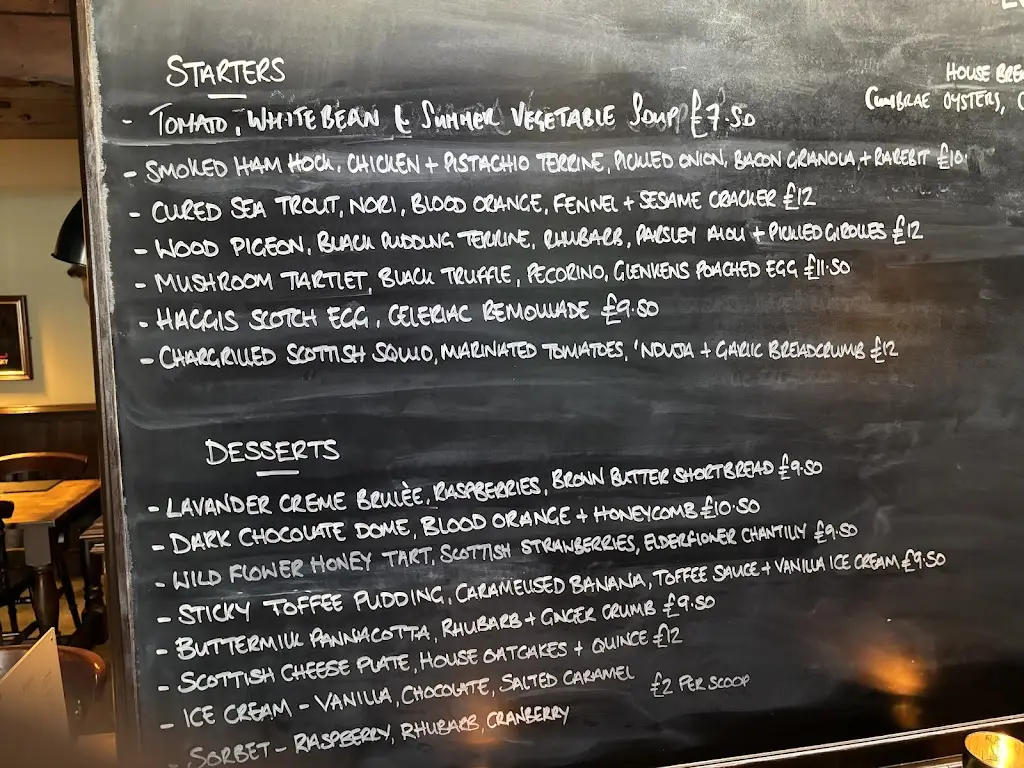 STARTERS
- TOMATO, WHITE BEAN & SUMMER VEGETABLE SOUP £7.50
- SMOKED HAM HOCK, CHICKEN + PISTACHIO TERRINE, PICKLED ONION, BACON GRANOLA, + RAREBIT £10
- CURED SEA TROUT, NORI, BLOOD ORANGE, FENNEL + SESAME CRACKER £12
- WOOD PIGEON, BLACK PUDDING TERRINE, RHUBARB, PARSLEY AIOLI + PICKLED GIROLLES £12
- MUSHROOM TARTLET, BLACK TRUFFLE, PECORINO, GLENKENS POACHED EGG £11.50
- HAGGIS SCOTCH EGG, CELERIAC REMOULADE £9.50
- CHARGRILLED SCOTTISH SQUID, MARINATED TOMATOES, 'NDUJA + GARLIC BREADCRUMB £12
HOUSE BRE
CUMBRAE OYSTERS,
DESSERTS
- LAVANDER CREME BRULÈE, RASPBERRIES, BROWN BUTTER SHORTBREAD £9.50
- DARK CHOCOLATE DOME, BLOOD ORANGE + HONEYCOMB £10.50
- WILD FLOWER HONEY TART, SCOTTISH STRAWBERRIES, ELDERFLOWER CHANTILLY £9.50
- STICKY TOFFEE PUDDING, CARAMELISED BANANA, TOFFEE SAUCE + VANILLA ICE CREAM £9.50
- BUTTERMILK PANNACOTTA, RHUBARB + GINGER CRUMB £9.50
- SCOTTISH CHEESE PLATE, HOUSE OATCAKES + QUINCE £12
- ICE CREAM - VANILLA, CHOCOLATE, SALTED CARAMEL £2 PER SCOOP
- SORBET - RASPBERRY, RHUBARB, CRANBERRY